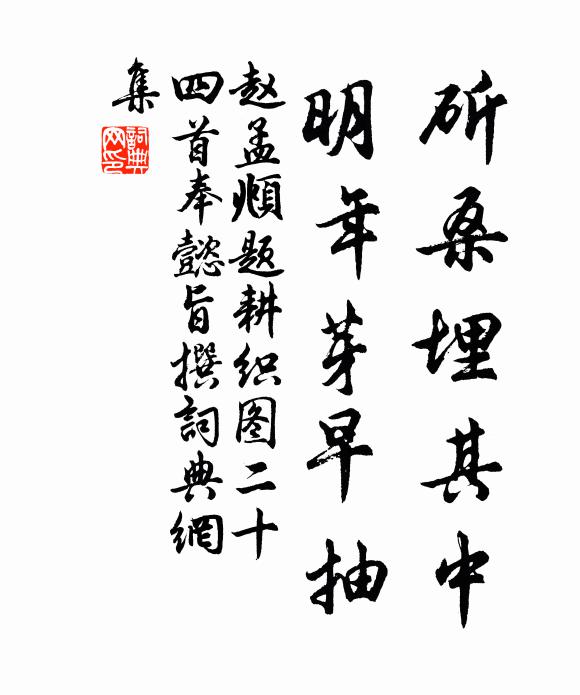 斫桑埋其中
明年芽早抽
赵孟頫题耕织图二十
四首奉懿旨撰詞典網
集
詞典网印